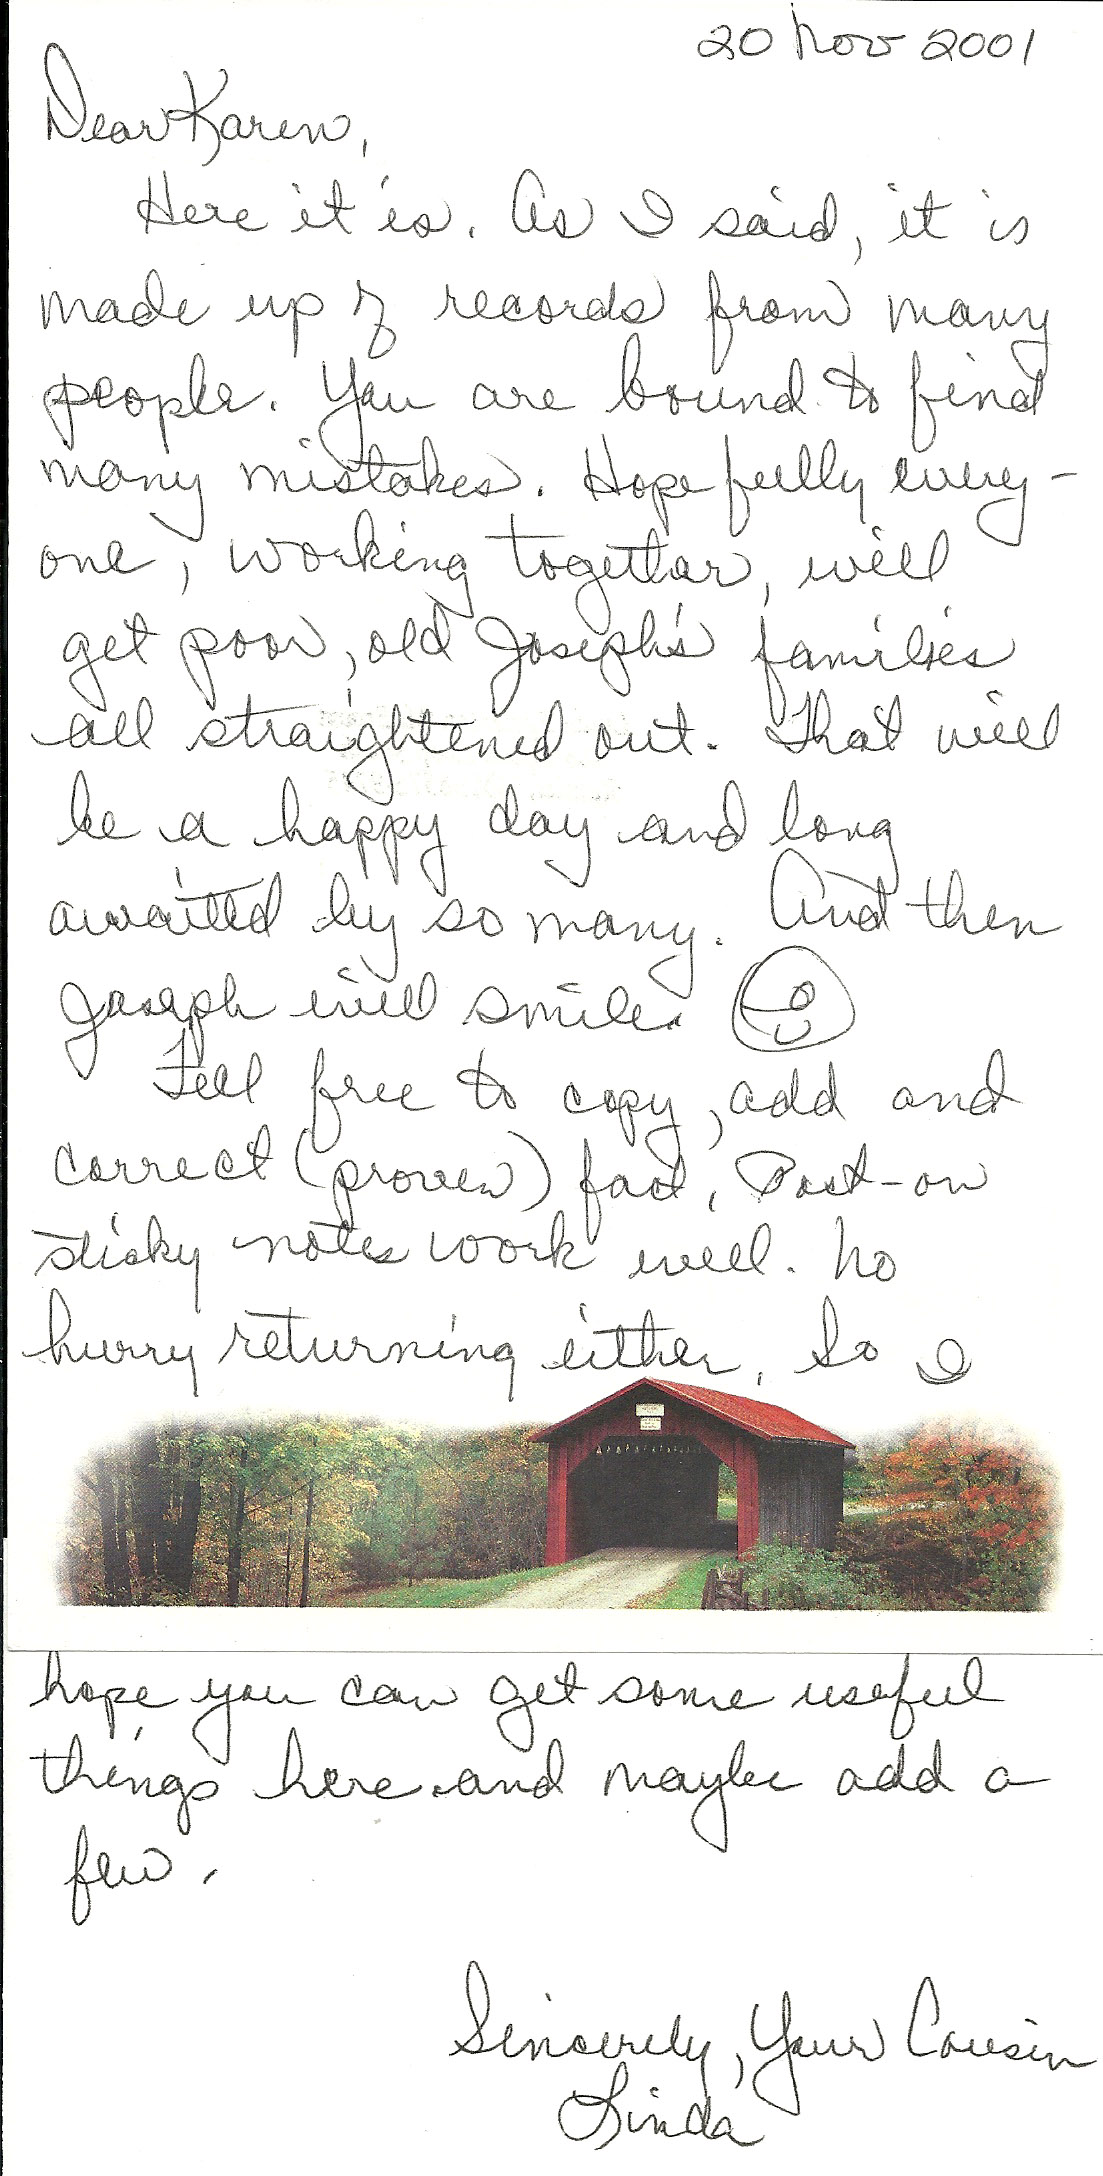 20 Nov 2001
Dear Karen,
Here it is. As I said, it is
made up of records from many
people. You are bound to find
many mistakes. Hopefully every-
one, working together, will
get poor, old Joseph's families
all straightened out. That will
be a happy day and long
awaited by so many. And then
Joseph will smile.
Feel free to copy, add and
correct (proven) fact, Post-on
sticky notes work well. No
hurry returning either. So I
hope you can get some useful
things here and maybe add a
few.
Sincerely, Your Cousin
Linda